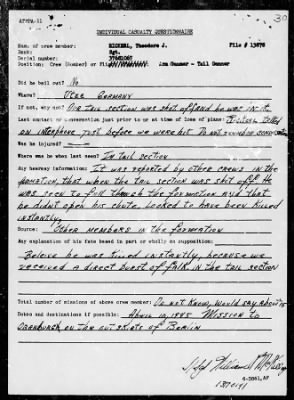 30
AFPPA-11
INDIVIDUAL CASUALTY QUESTIONNAIRE
Name of crew member: Theodore J. File # 13878
Rank: Sgt.
Serial number:
Position: Crew (Bomber) or Arm Gunner - Tail Gunner
Did he bail out? No
Where? Over Germany
If not, why not? Our tail section was shot off and he was in it.
Last contact or conversation just prior to or at time of loss of plane: talked
on interphone just before we were hit. Do not remember conversation
Was he injured?
Where was he when last seen? In tail section
Any hearsay information: It was reported by other crews in the
formation, that when the tail section was shot off he
was seen to fall through the formation and that
he didn't open his chute. Looked to have been killed
instantly.
Source: Other members in the formation
Any explanation of his fate based in part or wholly on supposition:
Beleive he was killed instantly, because we
received a direct burst of flak in the tail section
Total number of missions of above crew member: Do not know, would say about 15
Dates and destinations if possible: April 10, 1945 Mission to
Oranburg on the out skirts of Berlin
6-3861,AF